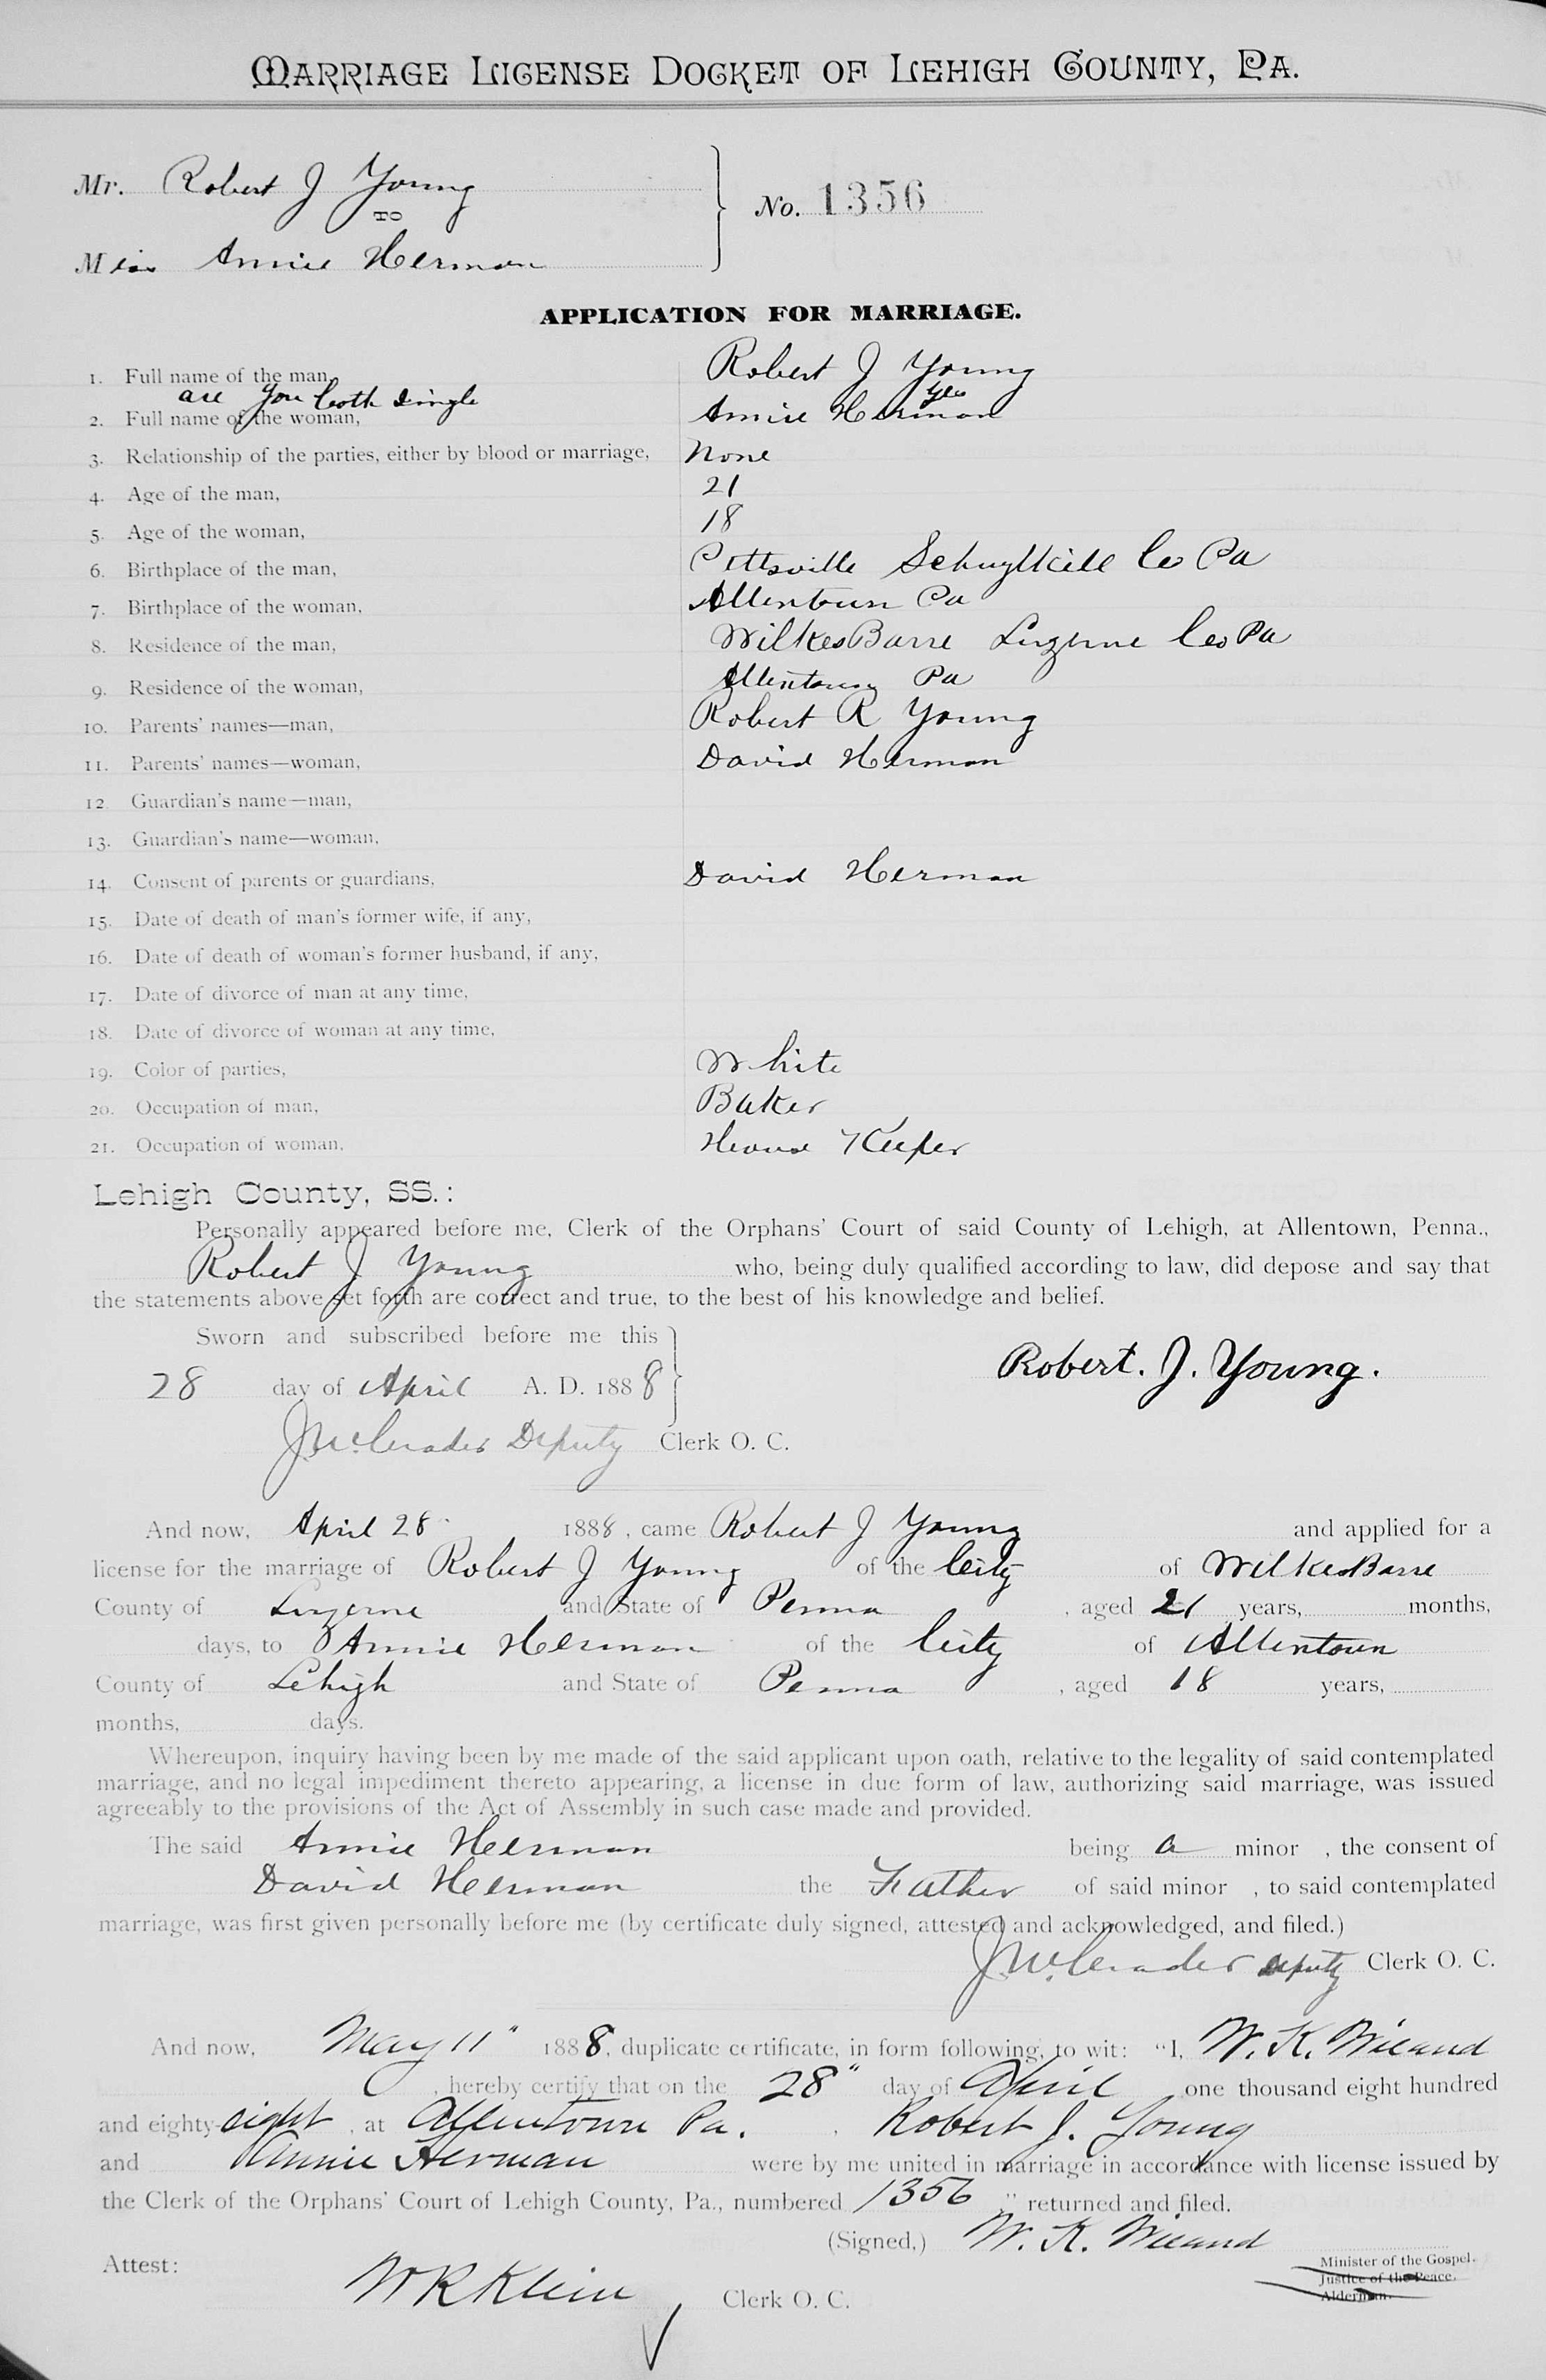 MARRIAGE LICENSE DOCKET OF LEHIGH COUNTY, PA.
Mr. Robert J Young
TO
No. 1356
Miss Annie Herman
APPLICATION FOR MARRIAGE.
1. Full name of the man, Robert J Young
are you both single yes
2. Full name of the woman, Annie Herman
3. Relationship of the parties, either by blood or marriage, None
4. Age of the man, 21
5. Age of the woman, 18
6. Birthplace of the man, Pottsville Schuylkill Co Pa
7. Birthplace of the woman, Allentown Pa
8. Residence of the man, WilkesBarre Luzerne Co Pa
9. Residence of the woman, Allentown Pa
10. Parents' names—man, Robert R Young
11. Parents' names—woman, David Herman
12. Guardian's name—man,
13. Guardian's name—woman,
14. Consent of parents or guardians, David Herman
15. Date of death of man's former wife, if any,
16. Date of death of woman's former husband, if any,
17. Date of divorce of man at any time,
18. Date of divorce of woman at any time,
19. Color of parties, White
20. Occupation of man, Baker
21. Occupation of woman, House Keeper
Lehigh County, SS.:
Personally appeared before me, Clerk of the Orphans' Court of said County of Lehigh, at Allentown, Penna.,
Robert J Young who, being duly qualified according to law, did depose and say that
the statements above set forth are correct and true, to the best of his knowledge and belief.
Sworn and subscribed before me this
Robert. J. Young.
28 day of April A. D. 1888
Deputy Clerk O. C.
And now, April 28 1888, came Robert J Young and applied for a
license for the marriage of Robert J Young of the City of WilkesBarre
County of Luzerne and State of Penna, aged 21 years, months,
days, to Annie Herman of the City of Allentown
County of Lehigh and State of Penna, aged 18 years,
months, days.
Whereupon, inquiry having been by me made of the said applicant upon oath, relative to the legality of said contemplated
marriage, and no legal impediment thereto appearing, a license in due form of law, authorizing said marriage, was issued
agreeably to the provisions of the Act of Assembly in such case made and provided.
The said Annie Herman being a minor , the consent of
David Herman the Father of said minor , to said contemplated
marriage, was first given personally before me (by certificate duly signed, attested and acknowledged, and filed.)
Deputy Clerk O. C.
And now, May 11" 1888, duplicate certificate, in form following, to wit: "I, W. K. Wieand
, hereby certify that on the 28" day of April one thousand eight hundred
and eighty-eight, at Allentown Pa. , Robert J. Young
and Annie Herman were by me united in marriage in accordance with license issued by
the Clerk of the Orphans' Court of Lehigh County, Pa., numbered 1356 ," returned and filed.
(Signed,) W. K. Wieand
Minister of the Gospel.
Justice of the Peace.
Alderman.
Attest: W R Klein Clerk O. C.